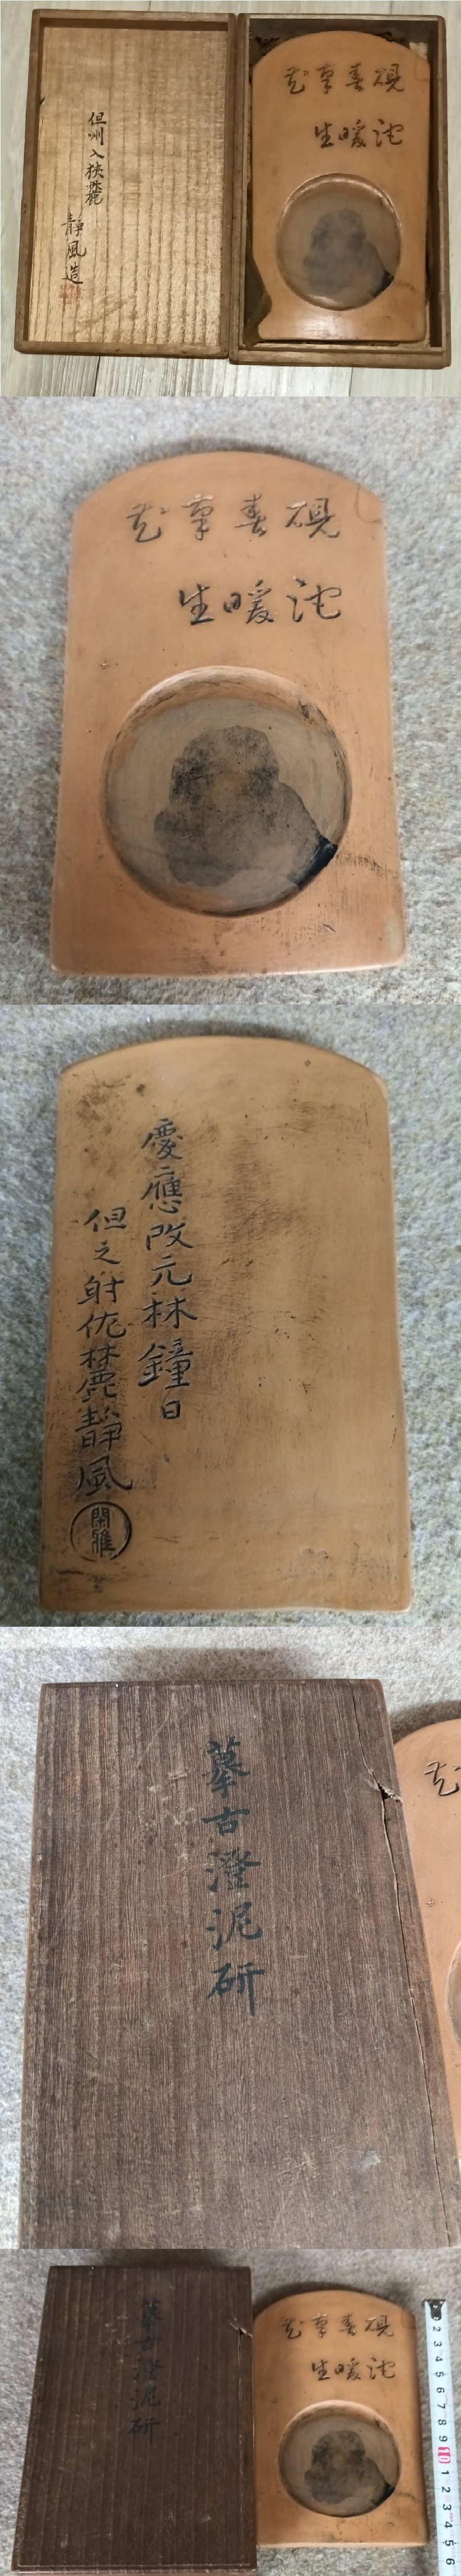 但州入狹麓
靜風造
硯春草花
池暖生
慶應改元林鐘日
但之射伩麓靜風
閑雅
摹古澄泥研
摹古澄泥研
硯春草花
池暖生
2 3 4 5 6 7 8 9 10 1 2 3 4 5 6